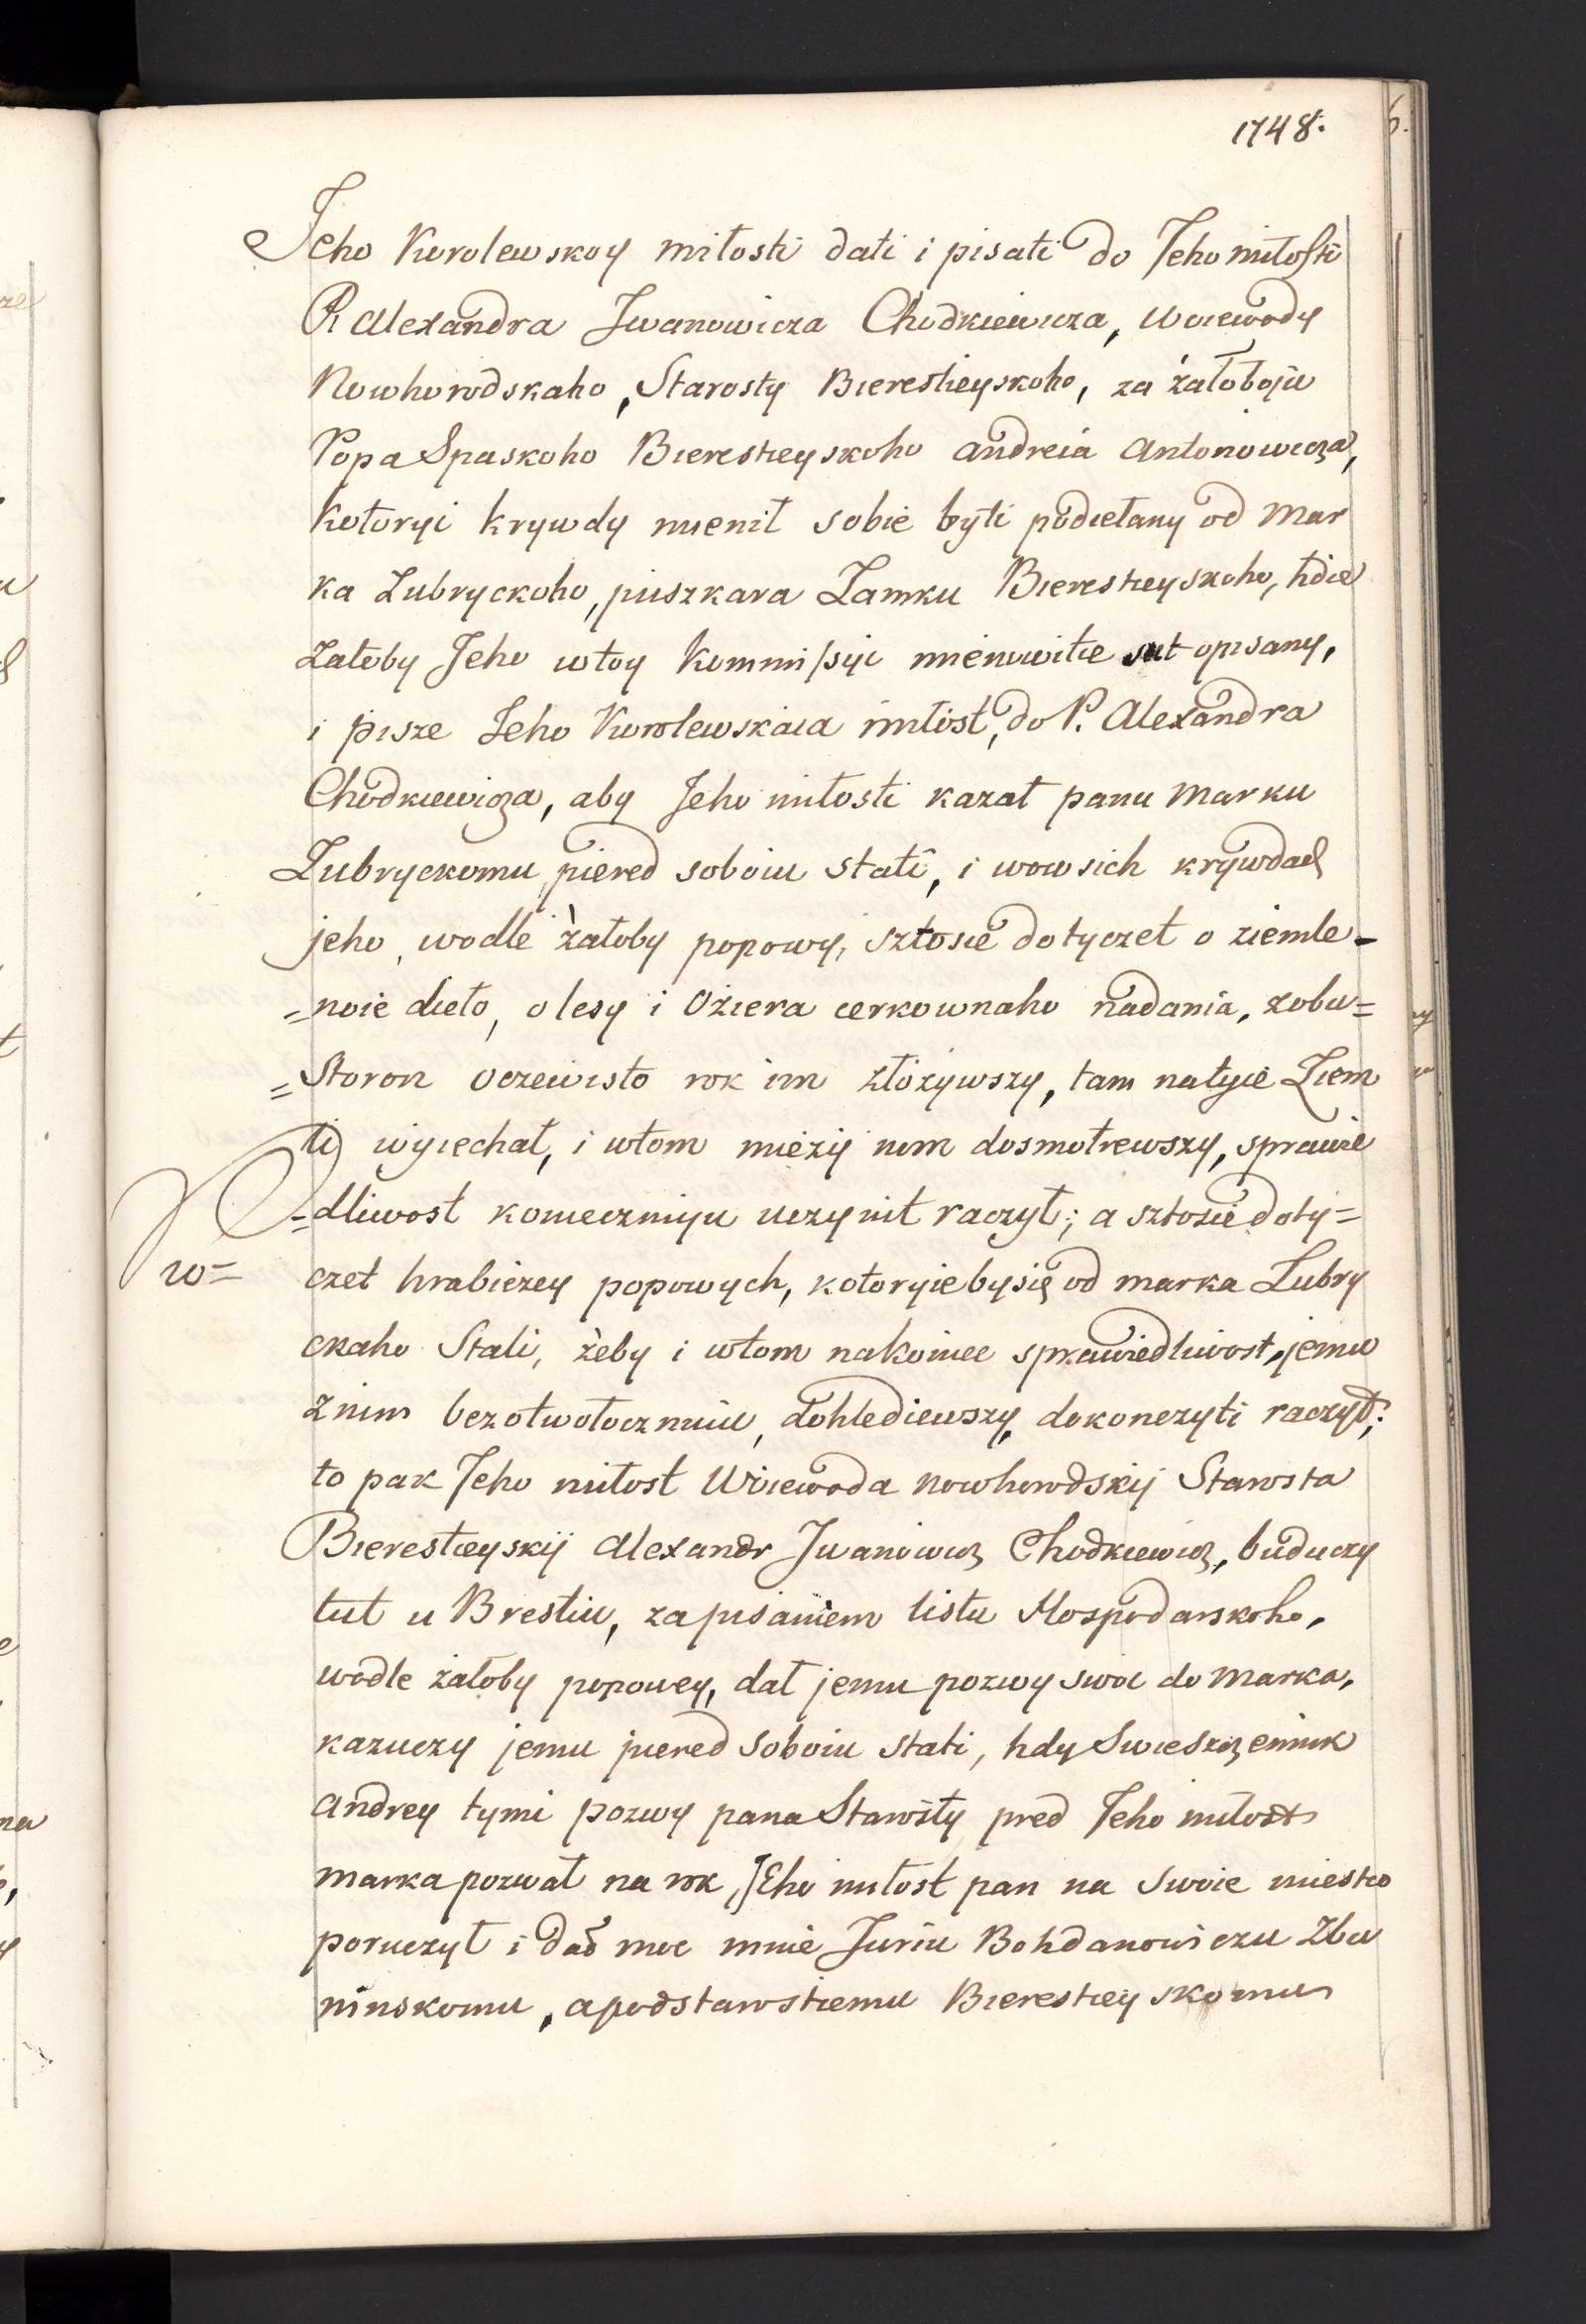 1748.
Jeho Korolewskoy miłosti dati i pisati do Jeho miłosti
P. Alexandra Jwanowicza Chodkiewicza, Woiewody
Nowhorodskaho, Starosty Bierestieyskoho, za żałoboju
Popa Spaskoho Bierestieyskoho Andreia Antonowicza,
kotoryi krywdy mienił sobie byti podiełany od Mar
ka Zubryckoho, puszkara Zamku Bierestieyskoho, hdie
Załoby Jeho wtoy Kommissyi mienowitie sut opisany,
i pisze Jeho Korolewskaia miłost, do P. Alexandra
Chodkiewicza, aby Jeho miłosti kazał panu Marku
Zubryckomu, piered soboiu stati, i wowsich krywdach
jeho, wodle żałoby popowy, sztosie dotyczet o ziemle-
=noie dieło, o lesy i Oziera cerkownaho nadania, zobu=
=Storon Oczewisto rok im złożywszy, tam natyie Ziem
li wyiechał, i wtom mieży nim dosmotrewszy, sprawie
=dliwost koniecznuju uczynit raczył; a sztosie doty=
w= czet hrabieżey popowych, kotoryiebysię od Marka Zubry
ckaho Stali, żeby i wtom nakoniec sprawiedliwost, jemu
Znim bezotwołocznuiu, dohlediewszy, dokonczyti raczył;
to pak Jeho miłost Woiewoda Nowhorodskij Starosta
Bierestieyskij Alexandr Jwanowicz Chodkiewicz, buduczy
tut u Brestiu, zapisaniem listu Hospodarskoho,
wodle żałoby popowey, dał jemu pozwy swoi do Marka,
kazuczy jemu piered Soboiu stati, hdy Swieszczennik
Andrey tymi pozwy pana Starosty pred Jeho miłost
Marka pozwał na rok, JEho miłost pan na Swoie miestco
poruczył i dał moc mnie Juriu Bohdanowiczu Zbu
ninskomu, apodstarostiemu Bierestieyskomu